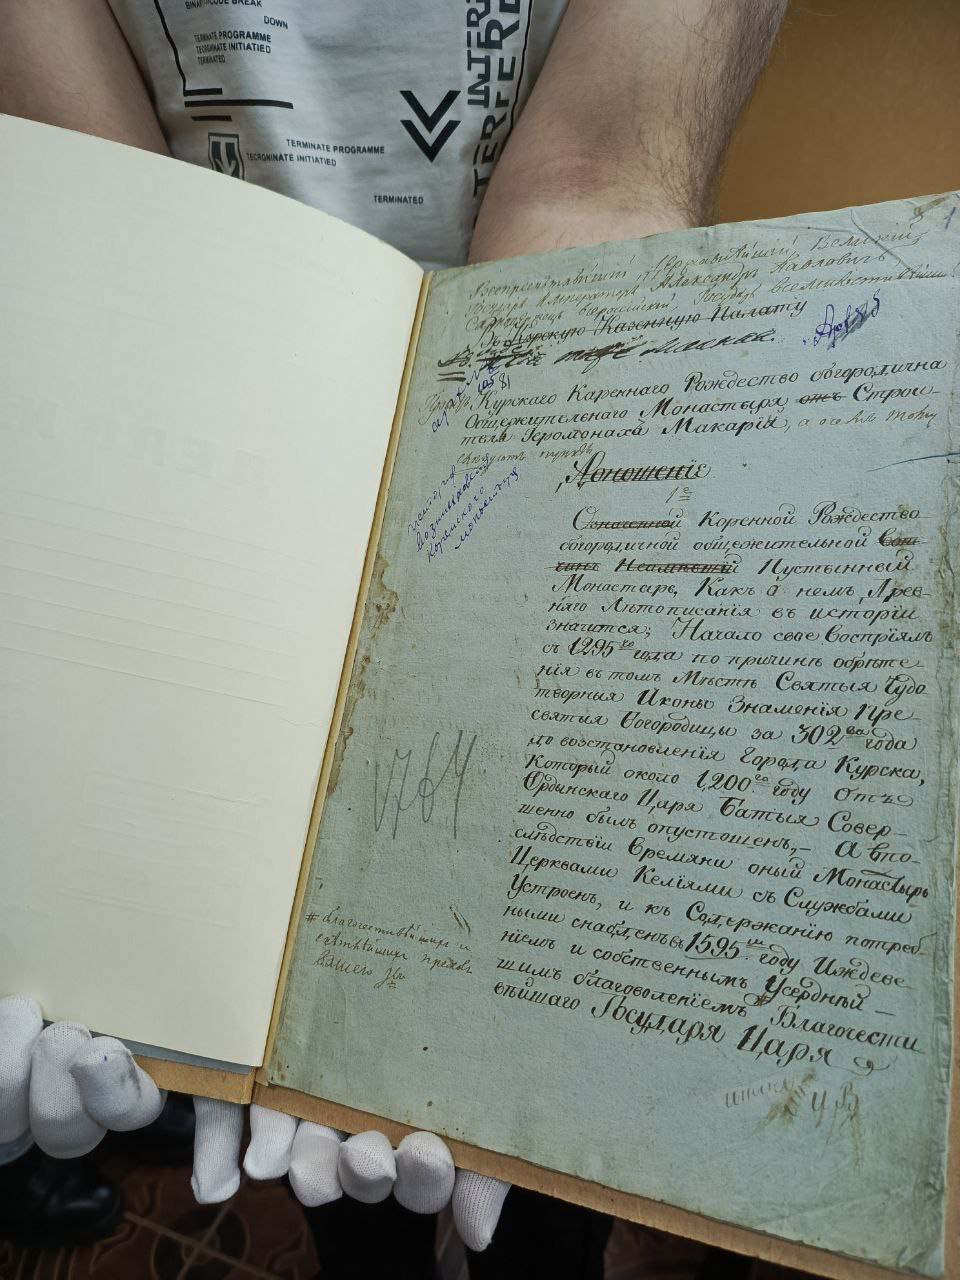 BINARY CODE BREAK
DOWN
TERMINATE PROGRAMME
TECRONINATE INITIATED
TERMINATED
TERMINATE PROGRAMME
TECRONINATE INITIATED
TERMINATED
INTERFERE
1
Всепресветлѣйшій, Державнѣйшій, Великій
Государь Императоръ Александръ Павловичъ
Самодержецъ всероссійскій Государь всемилостивѣйшій
Въ Курскую Казенную Палату
Курскаго Кареннаго Рождество богородична
Общежительнаго Монастыря отъ Строи-
теля Іеромонаха Макарія, а о чемъ тому
слѣдуютъ пункты
Доношеніе
1е
Означенной Коренной Рождество
богородичной общежительной
Пустынный
Монастырь, Какъ о немъ, Древ-
няго Лѣтописанія въ исторіи
значится; Начало свое Воспріялъ
съ 1295го года по причинѣ обрѣте-
нія въ томъ Мѣстѣ Святыя Чудо
творныя Иконы Знаменія Пре-
святыя Богородицы за 302ва года
до возстановленія Города Курска,
Который около 1,200го году отъ
Ордынскаго Царя Батыя Совер-
шенно былъ опустошенъ,- А впо-
слѣдствіи Времяни оный Монастырь
Церквами Келіями съ Службами
Устроенъ, и къ Содержанію потреб-
ными снабденъ въ 1595мъ году Иждеве-
ніемъ и собственнымъ Усердный-
шимъ благоволеніемъ # Благочести
вѣйшаго Государя Царя
возникновеніе
Коренского
монастыря
1764
# благочестивѣйшихъ и
свѣтлѣйшихъ предков
вашего